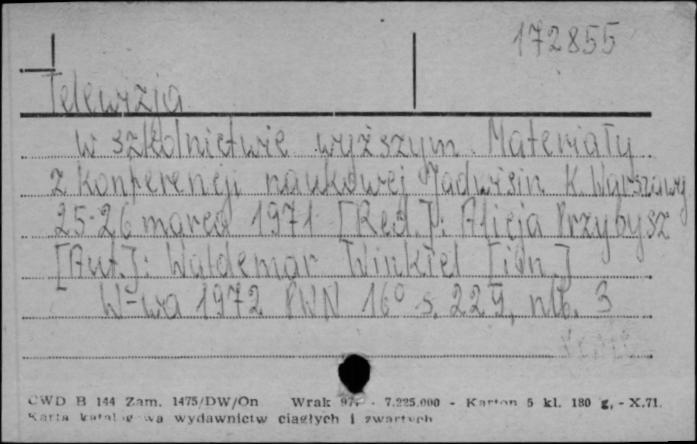 172855
Telewizja
w szkolnictwie wyższym. Materiały
z konferencji naukowej Jadwisin k. Warszawy
25-26 marca 1971 [Red.]: Alicja Przybysz
[Aut.]: Waldemar Winkiel [i in.]
W-wa 1972 PWN 16° s. 229, nlb. 3
CWD B 144 Zam. 1475/DW/On Wrak - 7.225.000 - Karton 5 kl. 180 g, - X.71.
Karta katalogowa wydawnictw ciągłych i zwartych